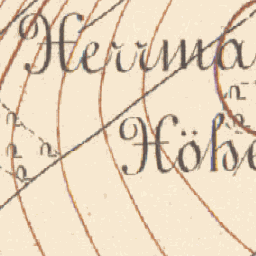 Herrma
Höhe